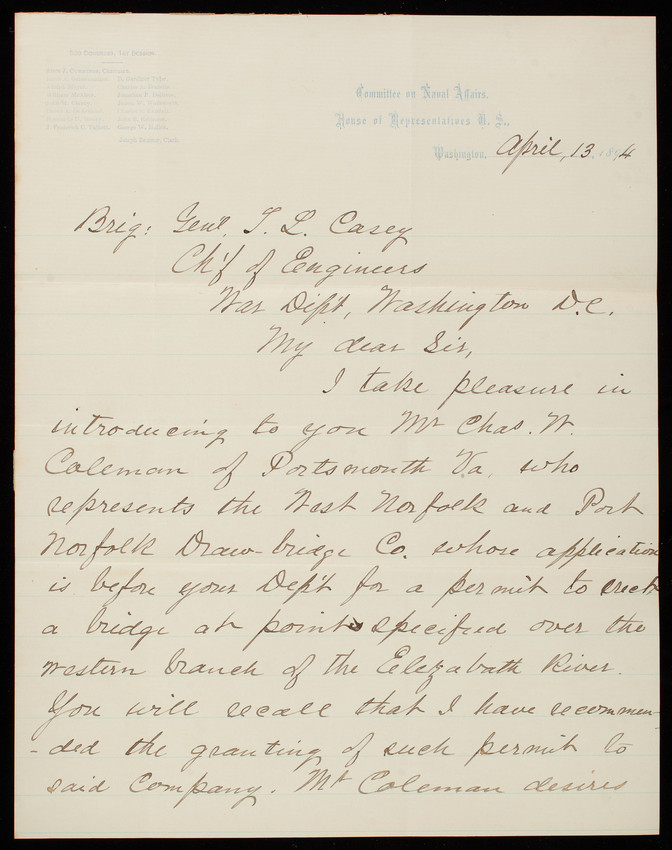 Committee on Naval Affairs,
House of Representatives U. S.,
Washington, April, 13, 1894
Brig: Genl, T. L. Casey
Ch'f of Engineers
War Dep't, Washington D.C.
My dear Sir,
I take pleasure in
introducing to you Mr Chas. W.
Coleman of Portsmouth Va, who
represents the West Norfolk and Port
Norfolk Draw-bridge Co. whose application
is before your Dep't for a permit to erect
a bridge at points specified over the
western branch of the Elizabeth River.
You will recall that I have recommen-
-ded the granting of such permit to
said Company. Mr Coleman desires